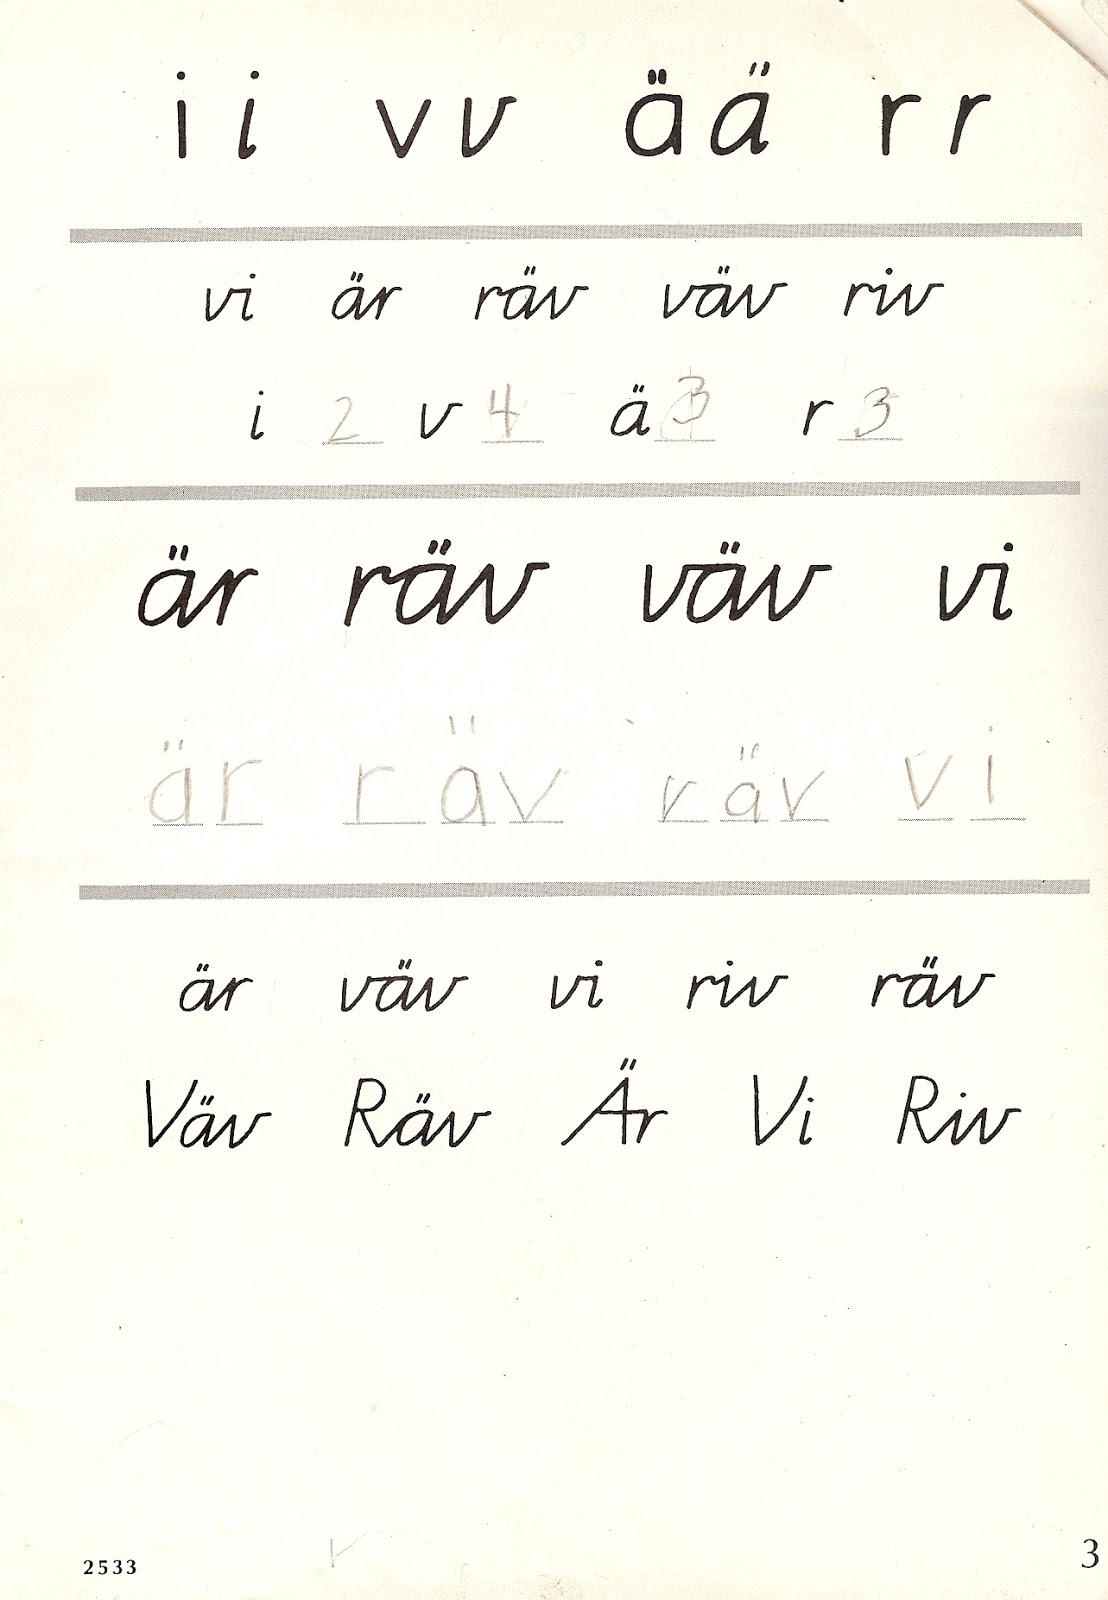 i i v v ä ä r r
vi är räv väv riv
i 2 v 4 ä 3 r 3
är räv väv vi
är räv väv vi
är väv vi riv räv
Väv Räv Är Vi Riv
2533 3